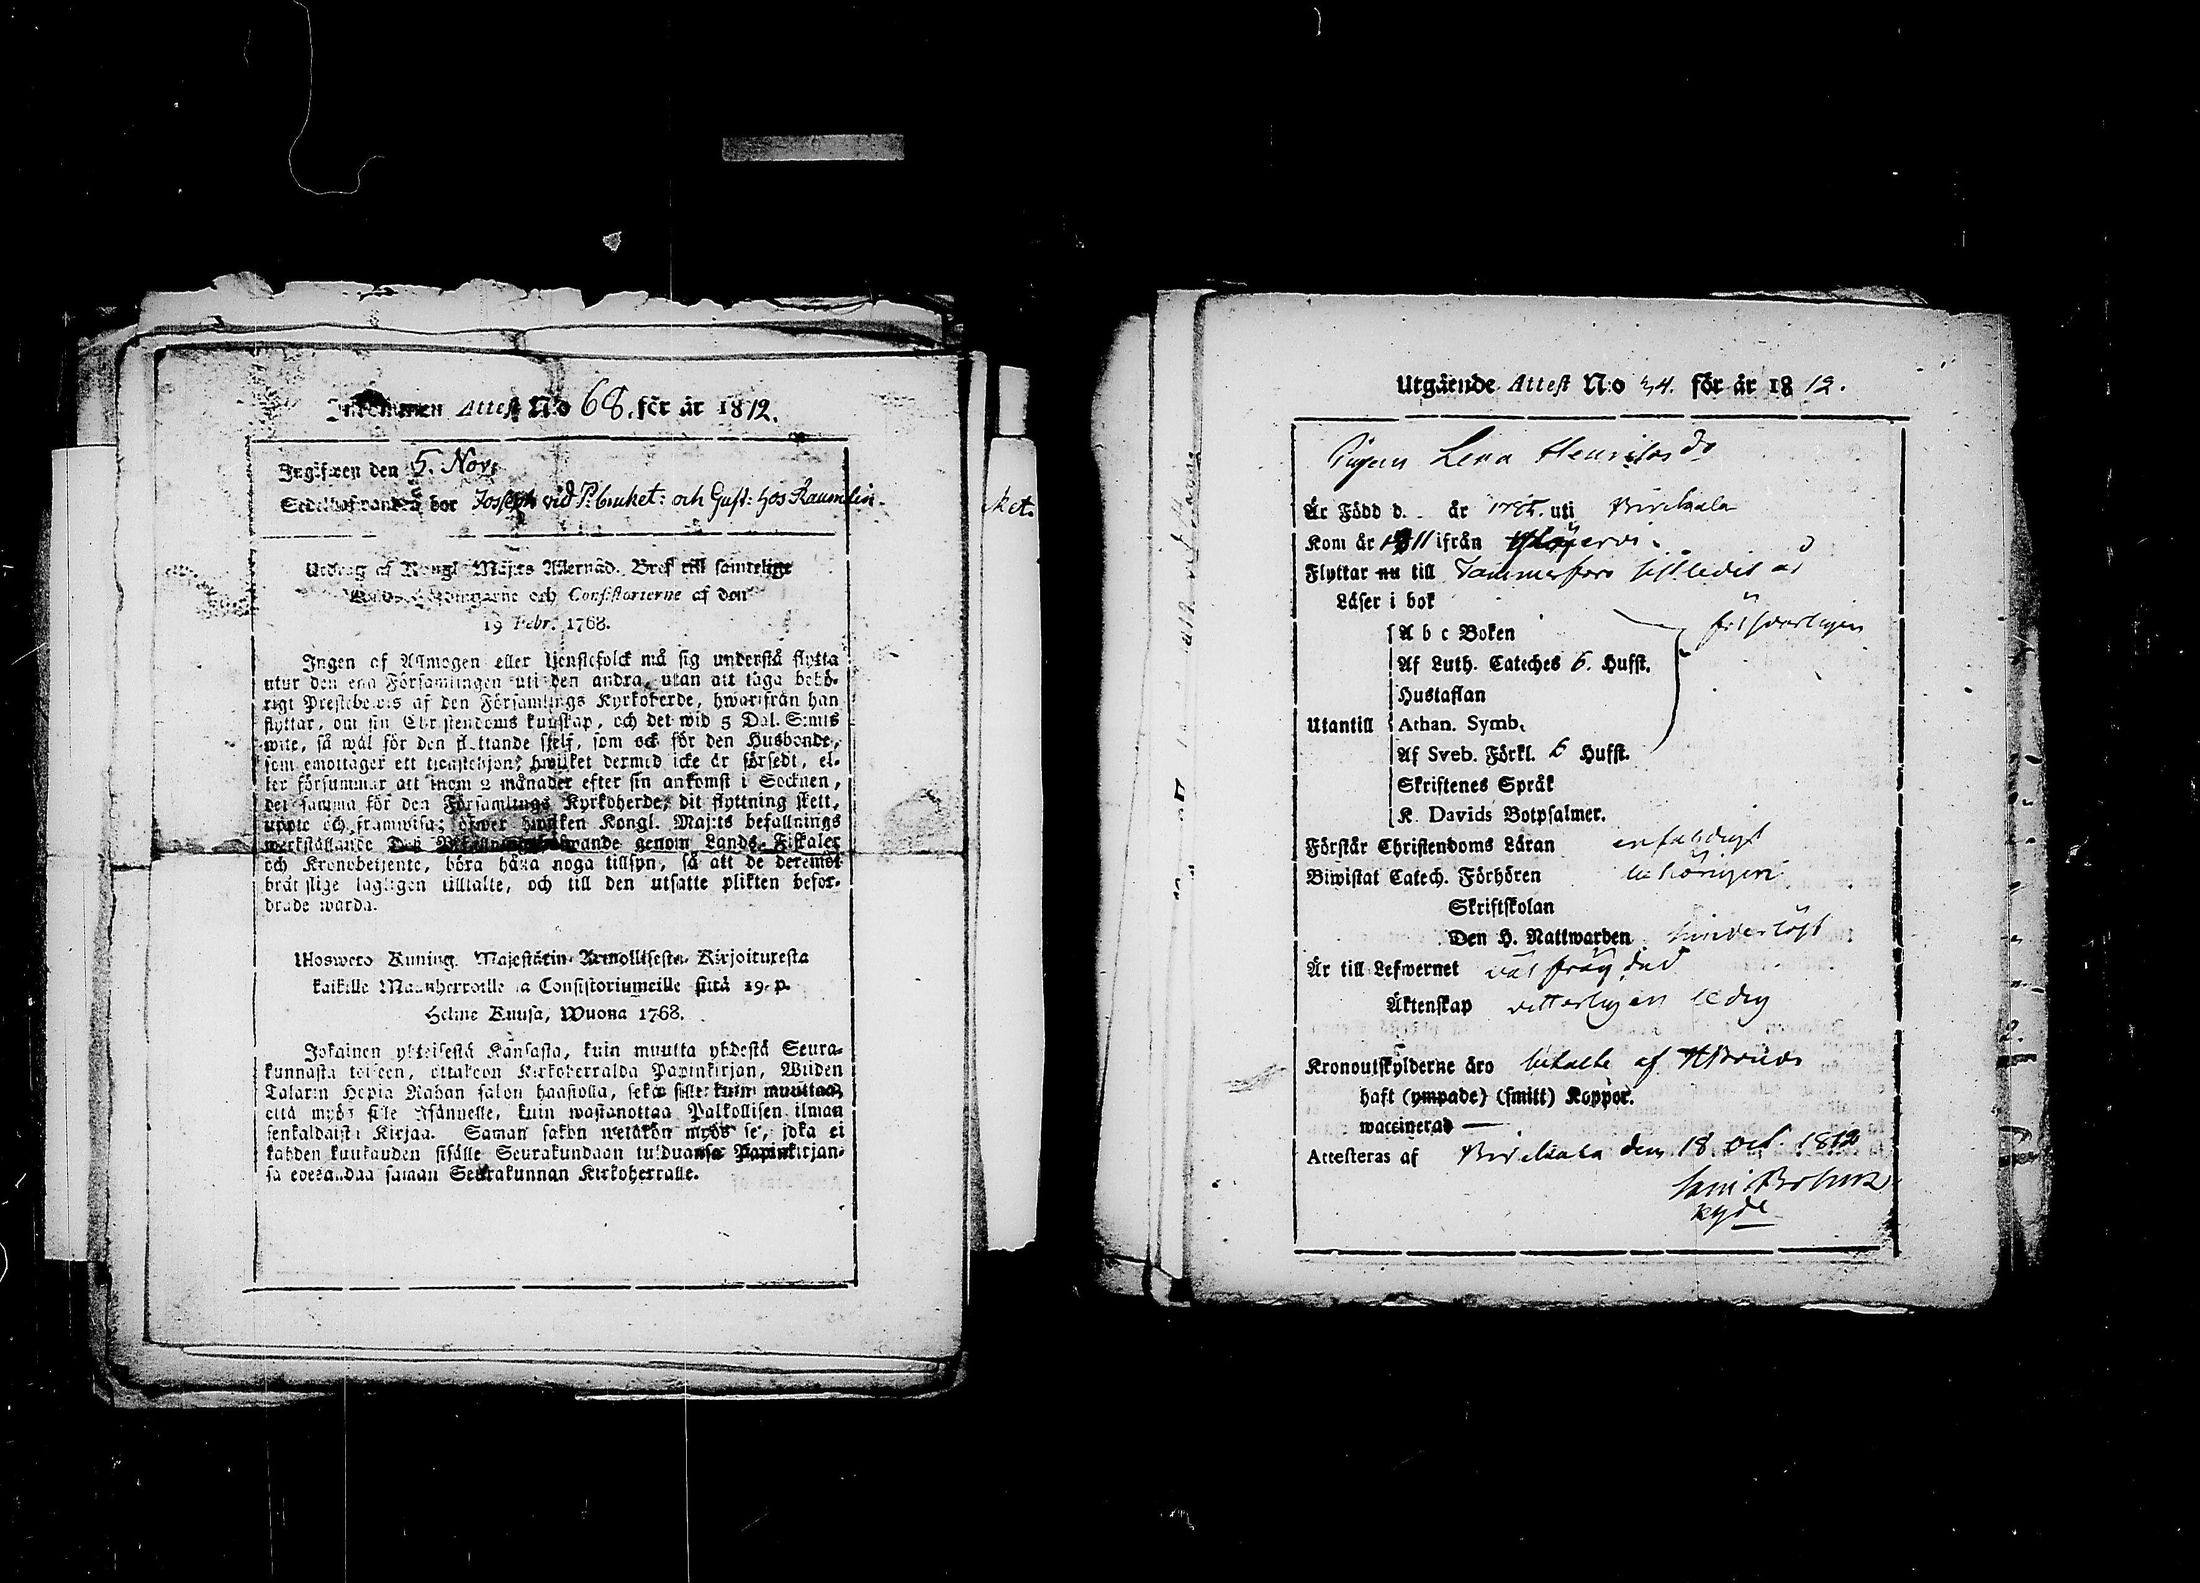 Inkommen Attest N:o 68. för år 1812.
Ingifwen den 5. Nov.
Sedelhafwanden bor Joseph vid P:bruket: och Gust: hos Raumlin.
Utdrag af Kongl. Maj:ts Allernåd. Bref till samtelige
och Consistorierne af den
19 Febr. 1768.
Ingen af Allmogen eller tjenstefolck må sig understå flytta
utur den ena Församlingen uti den andra, utan att taga behö-
rigt Prestebewis af den Församlings Kyrkoherde, hwarifrån han
flyttar, om sin Christendoms kunskap, och det wid 5 Dal. S:mts
wite, så wäl för den flyttande sjelf, som ock för den Husbonde,
som emottager ett tjenstehjon, hwilket dermed icke är försedt, el-
ler försummar att inom 2 månader efter sin ankomst i Socknen,
det samma för den Församlings Kyrkoherde, dit flyttning skett,
uppte och framwisa; öfwer hwilken Kongl. Maj:ts befallnings
werkställande genom Lands-Fiskaler
och Kronobetjente, böra hafwa noga tillsyn, så att de deremot
brått slige lagligen tilltalte, och till den utsatte plikten befor-
drade warda.
Uloswero Kuning. Majestätin Armollisesta Kirjoituxesta
kaikille Maanherroille ja Consistoriumeille siitä 19. p.
Helme Kuusa, Wuona 1768.
Jokainen yhteisestä Kansasta, kuin muutta yhdestä Seura-
kunnasta toiseen, ottakoon Kirkoherralda Papinkirjan, Wiiden
Talarin Hopia Rahan sakon haastolla, sekä sille kuin muuttaa,
että myös sille Isännelle, kuin wastanottaa Palkollisen ilman
senkaldaista Kirjaa. Saman sakon wetäkön myös se, joka ei
kahden kuukauden sisälle Seurakundaan tulduansa Papinkirjan-
sa edesandaa saman Seurakunnan Kirkoherralle.
ket.
Utgående Attest N:o 34. för år 1812.
Pigan Lena Henriksdr
Är Född d. år 178 uti Birckala
Kom år 1811 ifrån Ylöjervi.
Flyttar nu till Tammerfors
Läser i bok
A b c Boken försvarligen
Af Luth. Cateches 6. Hufst.
Hustaflan
Utantill Athan. Symb.
Af Sveb. Förkl. 6 Hufst.
Skriftenes Språk
K. Davids Botpsalmer.
Förstår Christendoms Läran enfaldigt
Biwistat Catech. Förhören behörigen
Skriftskolan
Den H. Nattwarden hinderlöst
Är till Lefwernet väl frägdad
Äktenskap vetterligen ledig
Kronoutskylderne äro betalte af
haft (ympade) (smitt) Koppor.
waccinerad —
Attesteras af Birckala den 18 Oct. 1812